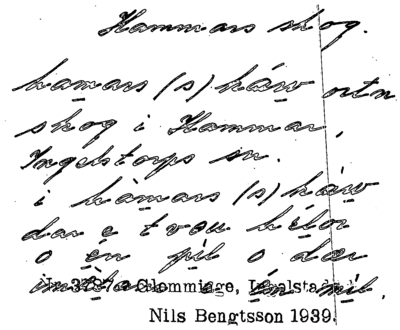 Hammars skog.
hamars (s) håw ortn
skog i Hammar,
Ingelstorps sn.
i hàmars (s) håw
dar e tvou hélor
o én pil o dær
Nr 3787 a Glemminge,
Nils Bengtsson 1939.